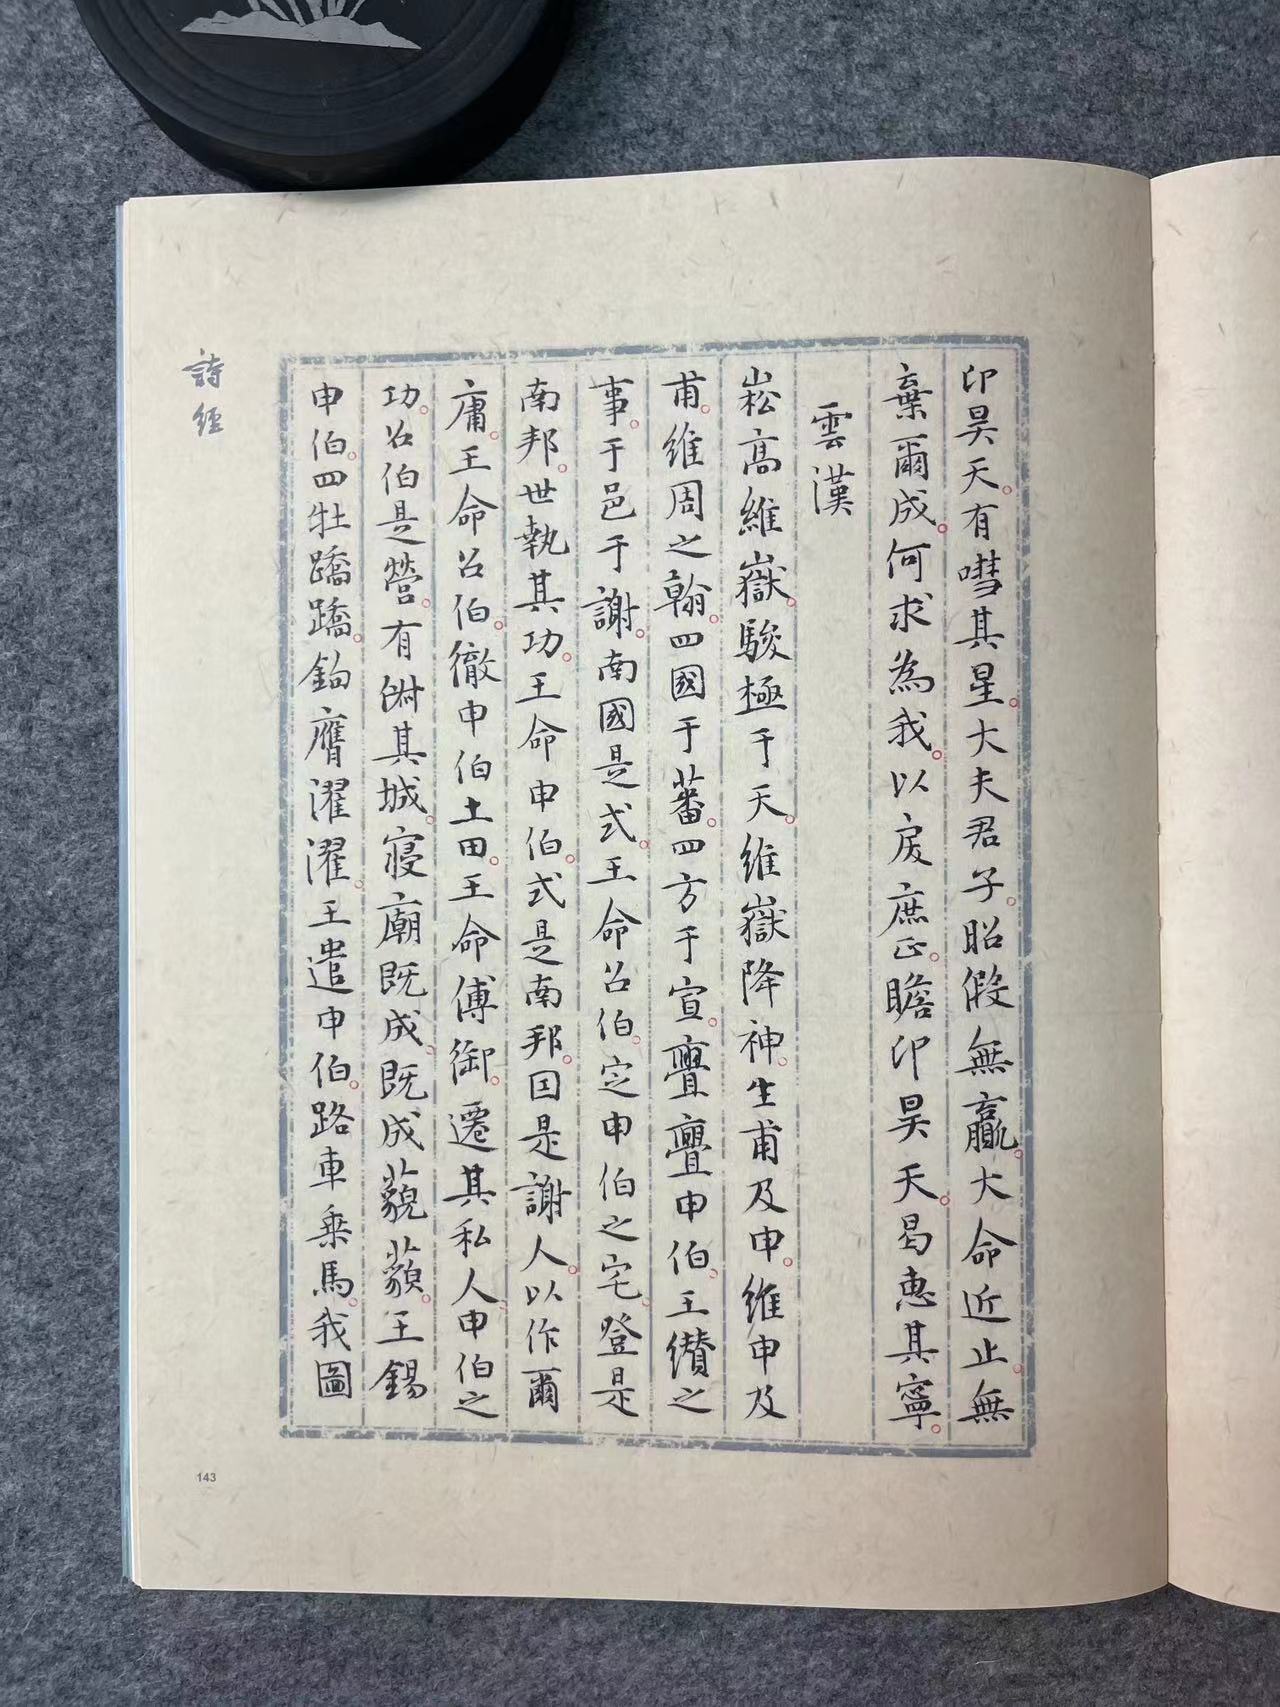 卬昊天。有嘒其星。大夫君子。昭假無贏。大命近止。無
棄爾成。何求為我。以戾庶正。瞻卬昊天。曷惠其寧。
雲漢
崧高維嶽。駿極于天。維嶽降神。生甫及申。維申及
甫。維周之翰。四國于蕃。四方于宣。亹亹申伯。王纘之
事。于邑于謝。南國是式。王命召伯。定申伯之宅。登是
南邦。世執其功。王命申伯。式是南邦。因是謝人。以作爾
庸。王命召伯。徹申伯土田。王命傅御。遷其私人。申伯之
功。召伯是營。有俶其城。寢廟既成。既成藐藐。王錫
申伯。四牡蹻蹻。鉤膺濯濯。王遣申伯。路車乘馬。我圖
詩經
143